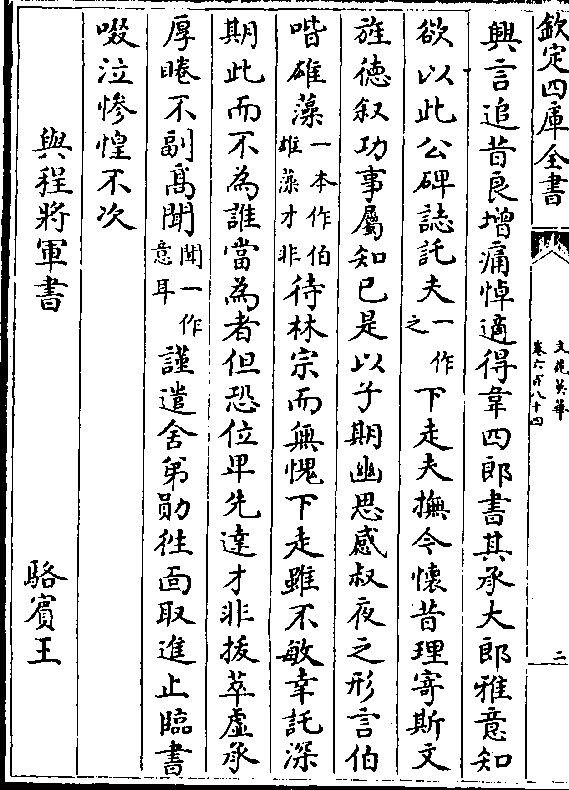 欽定四庫全書
文苑英華
卷六百八十四
二
興言追昔良增痛悼適得韋四郎書其承大郎雅意知
欲以此公碑誌託夫一作之下走夫撫今懷昔理寄斯文
旌德叙功事屬知已是以子期幽思感叔夜之形言伯
喈雄藻一本作伯雄藻才非待林宗而無愧下走雖不敏幸託深
期此而不為誰當為者但恐位卑先達才非拔萃虚承
厚睠不副髙聞聞一作意耳謹遣舍弟勛徃面取進止臨書
啜泣惨惶不次
與程將軍書
駱賓王